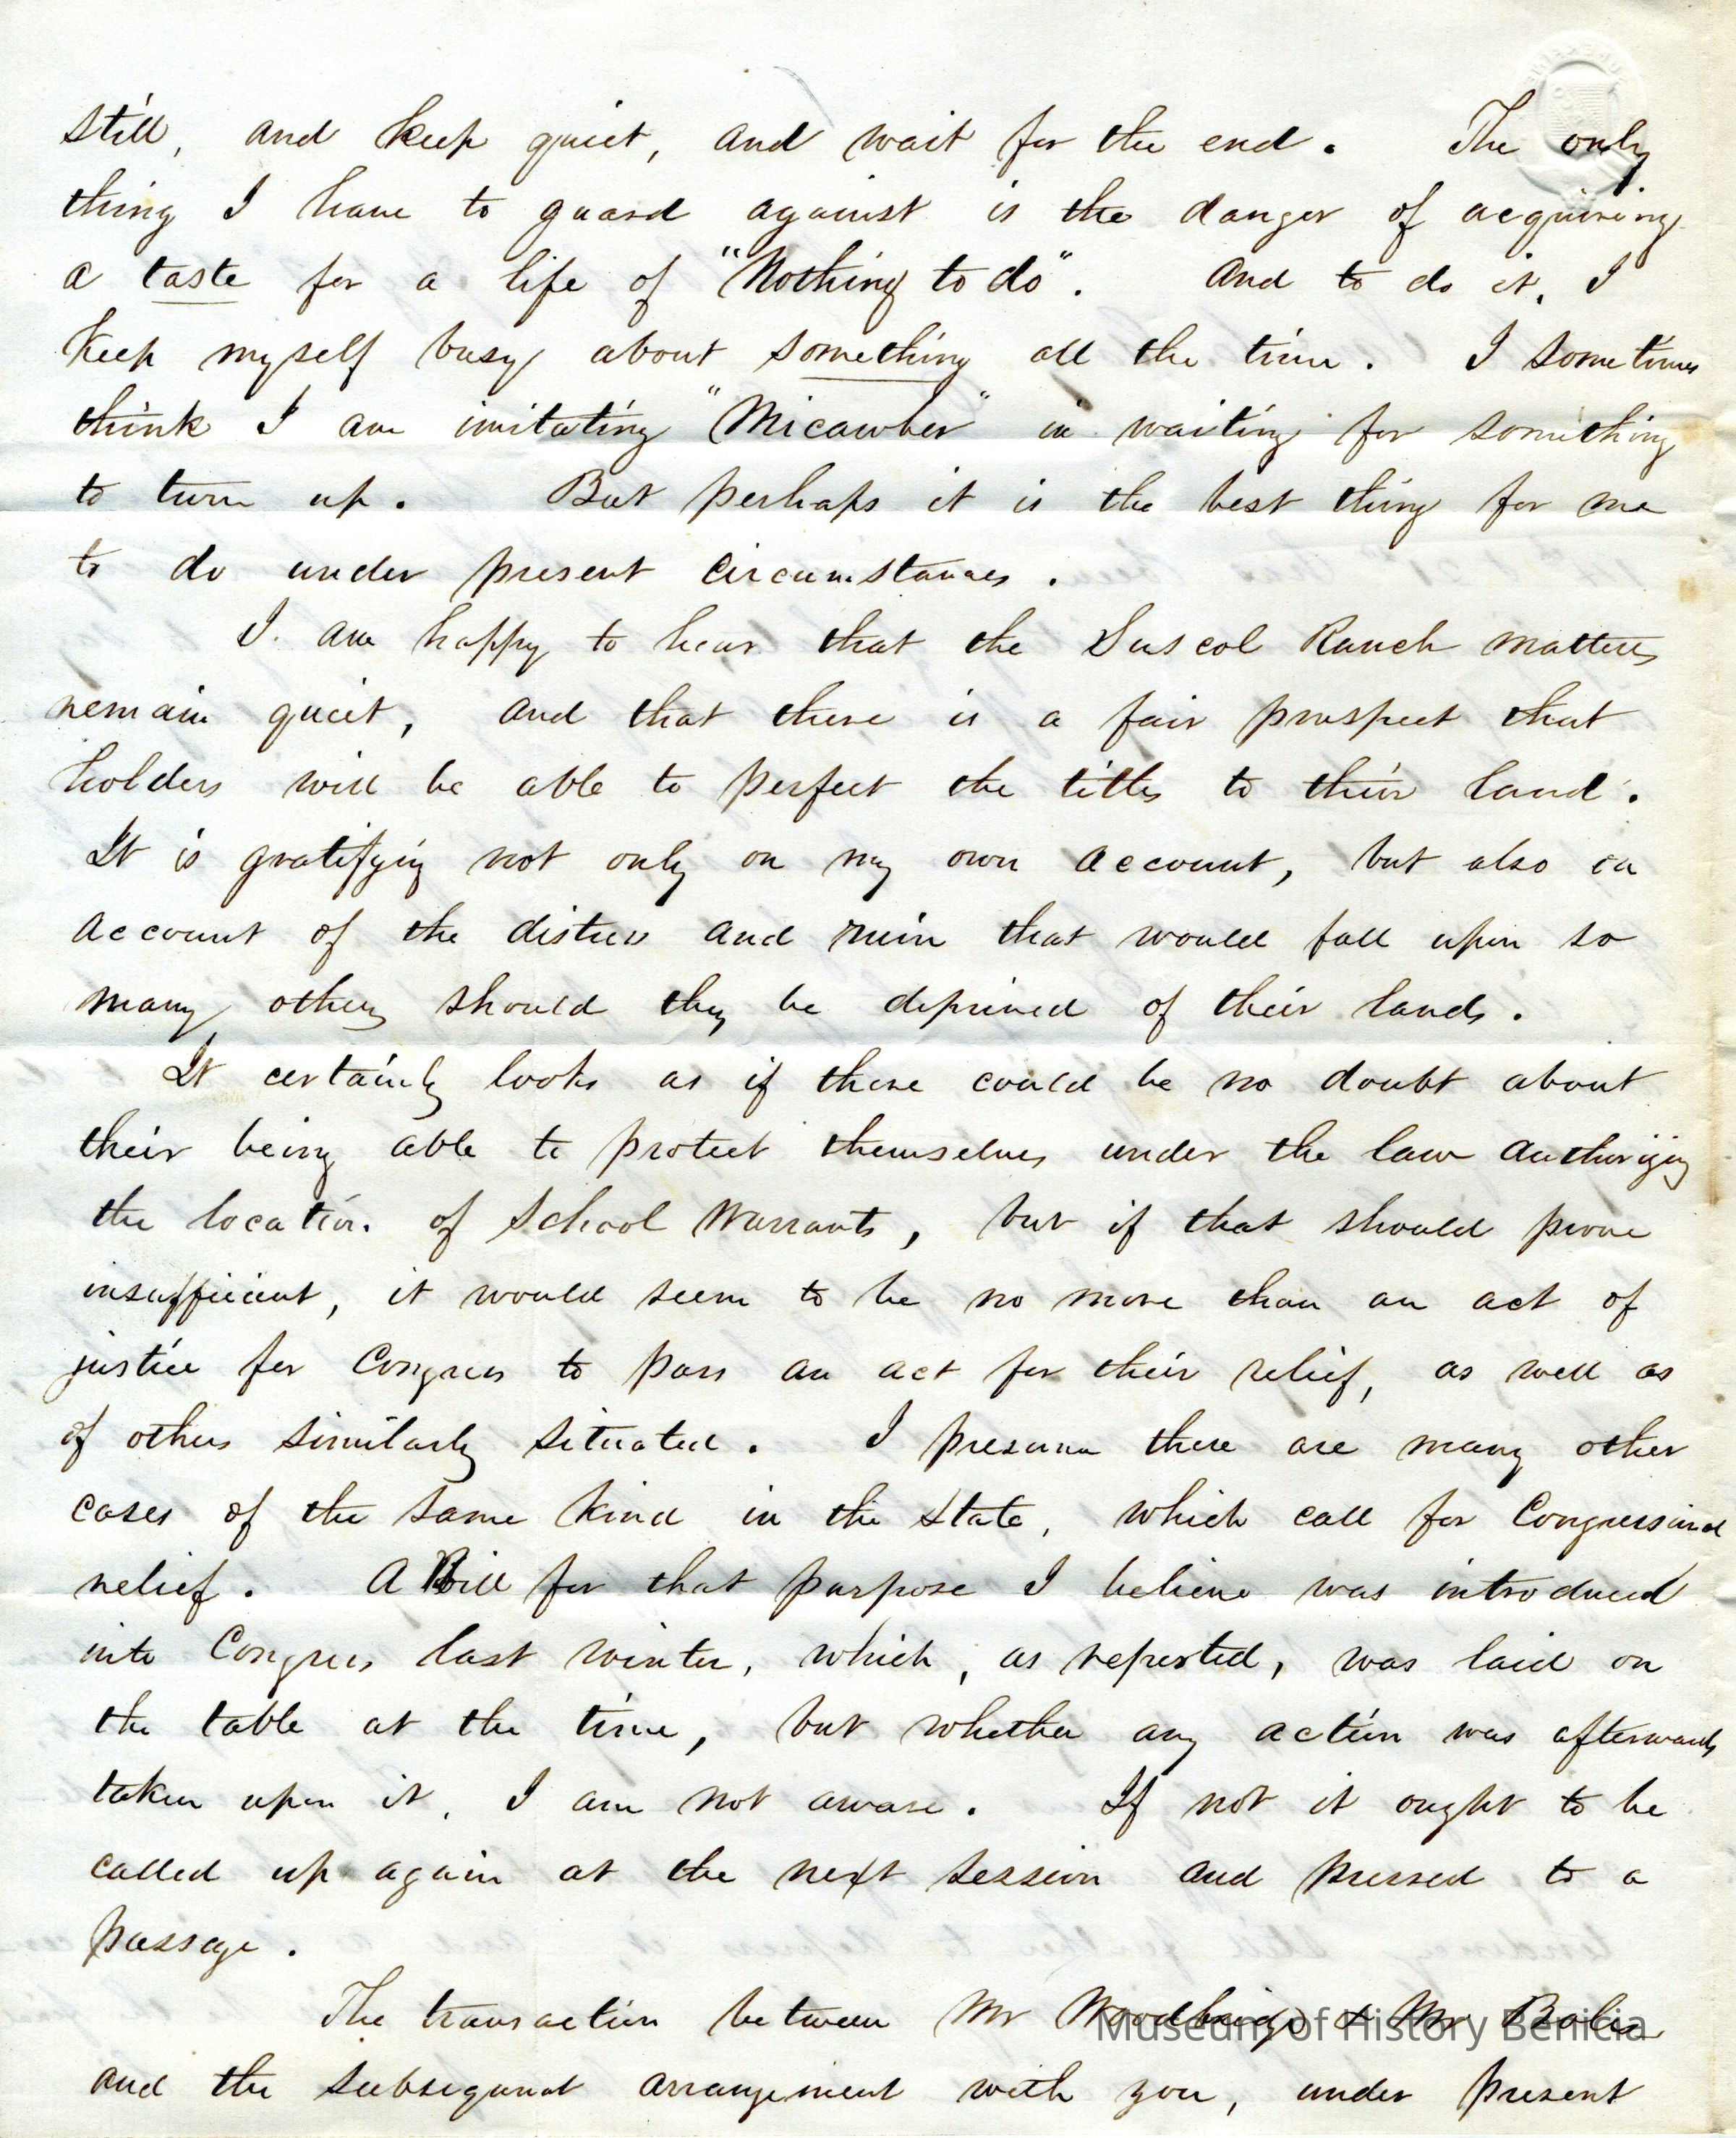 still, and keep quiet, and wait for the end. The only
thing I have to guard against is the danger of acquiring
a taste for a life of "Nothing to do". And to do it, I
keep myself busy about something all the time. I sometimes
think I am imitating "Micawber" in waiting for something
to turn up. But perhaps it is the best thing for me
to do under present circumstances.
I am happy to hear that the Suscol Ranch matters
remain quiet, and that there is a fair prospect that
holders will be able to perfect the titles to their land.
It is gratifying not only on my own account, but also on
account of the distress and ruin that would fall upon so
many others should they be deprived of their lands.
It certainly looks as if there could be no doubt about
their being able to protect themselves under the law authorizing
the location of School Warrants, but if that should prove
insufficient, it would seem to be no more than an act of
justice for Congress to pass an act for their relief, as well as
of others similarly situated. I presume there are many other
cases of the same kind in the State, which call for Congressional
relief. A Bill for that purpose I believe was introduced
into Congress last winter, which, as reported, was laid on
the table at the time, but whether any action was afterwards
taken upon it, I am not aware. If not it ought to be
called up again at the next session and pressed to a
passage.
The transaction between Mr Woodbridge & Mr
and the subsequent arrangement with you, under present
Museum of History Benicia